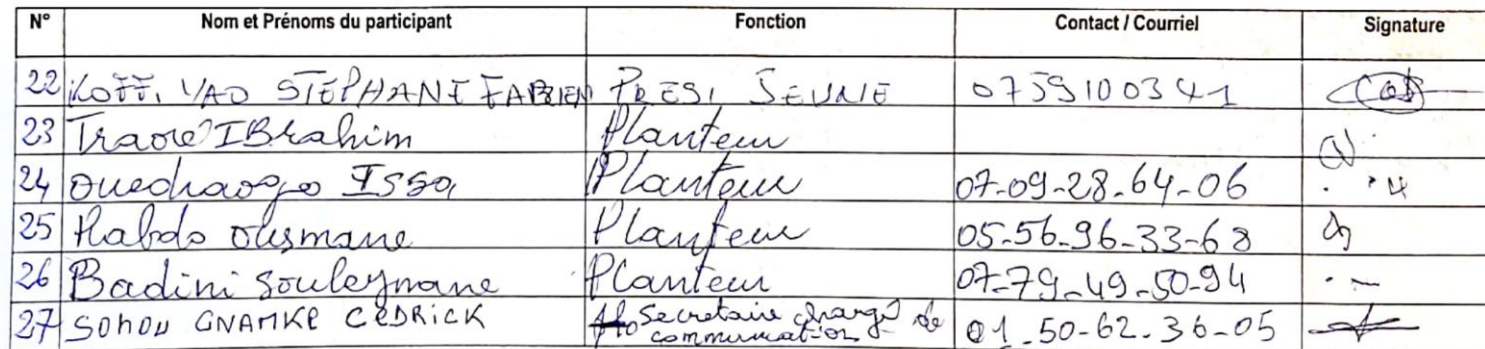 N° Nom et Prénoms du participant Fonction Contact / Courriel Signature
22 KOFFI YAO STEPHANE FABRIEN PRESI JEUNE 0759100341
23 Traoré IBrahim Planteur
24 Ouedraogo Issa Planteur 07-09-28-64-06
25 Rabdo Ousmane Planteur 05-56-96-33-68
26 Badini Souleymane Planteur 07-79-49-50-94
27 SOHOU GNAMKE CEDRICK Secretaire chargé de communication 01-50-62-36-05